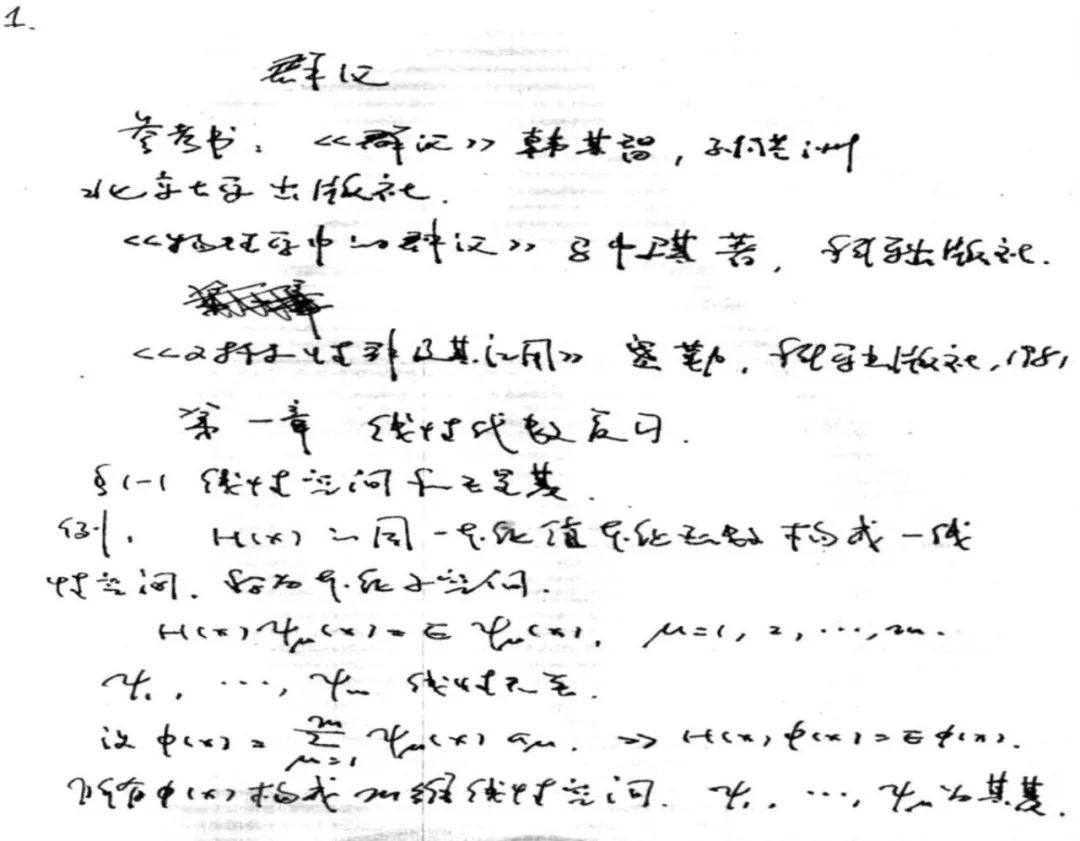 1.
群论
参考书：《群论》韩其智，孙洪洲
北京大学出版社.
《物理学中的群论》马中骐著，科学出版社.
《对称性群及其应用》 塞勒，科学出版社，1981
第一章 线性代数复习.
§1-1 线性空间和正交基.
例. H(x)的同一本征值本征函数构成一线
性空间，称为本征子空间.
H(x)ψμ(x)=E ψμ(x), μ=1, 2, ⋯, m.
ψ1, ⋯, ψm 线性无关.
设 φ(x) = ∑_{μ=1}^{m} ψμ(x) aμ. ⇒ H(x) φ(x) = E φ(x).
所有φ(x)构成 m维线性空间. ψ1, ⋯, ψμ为其基.